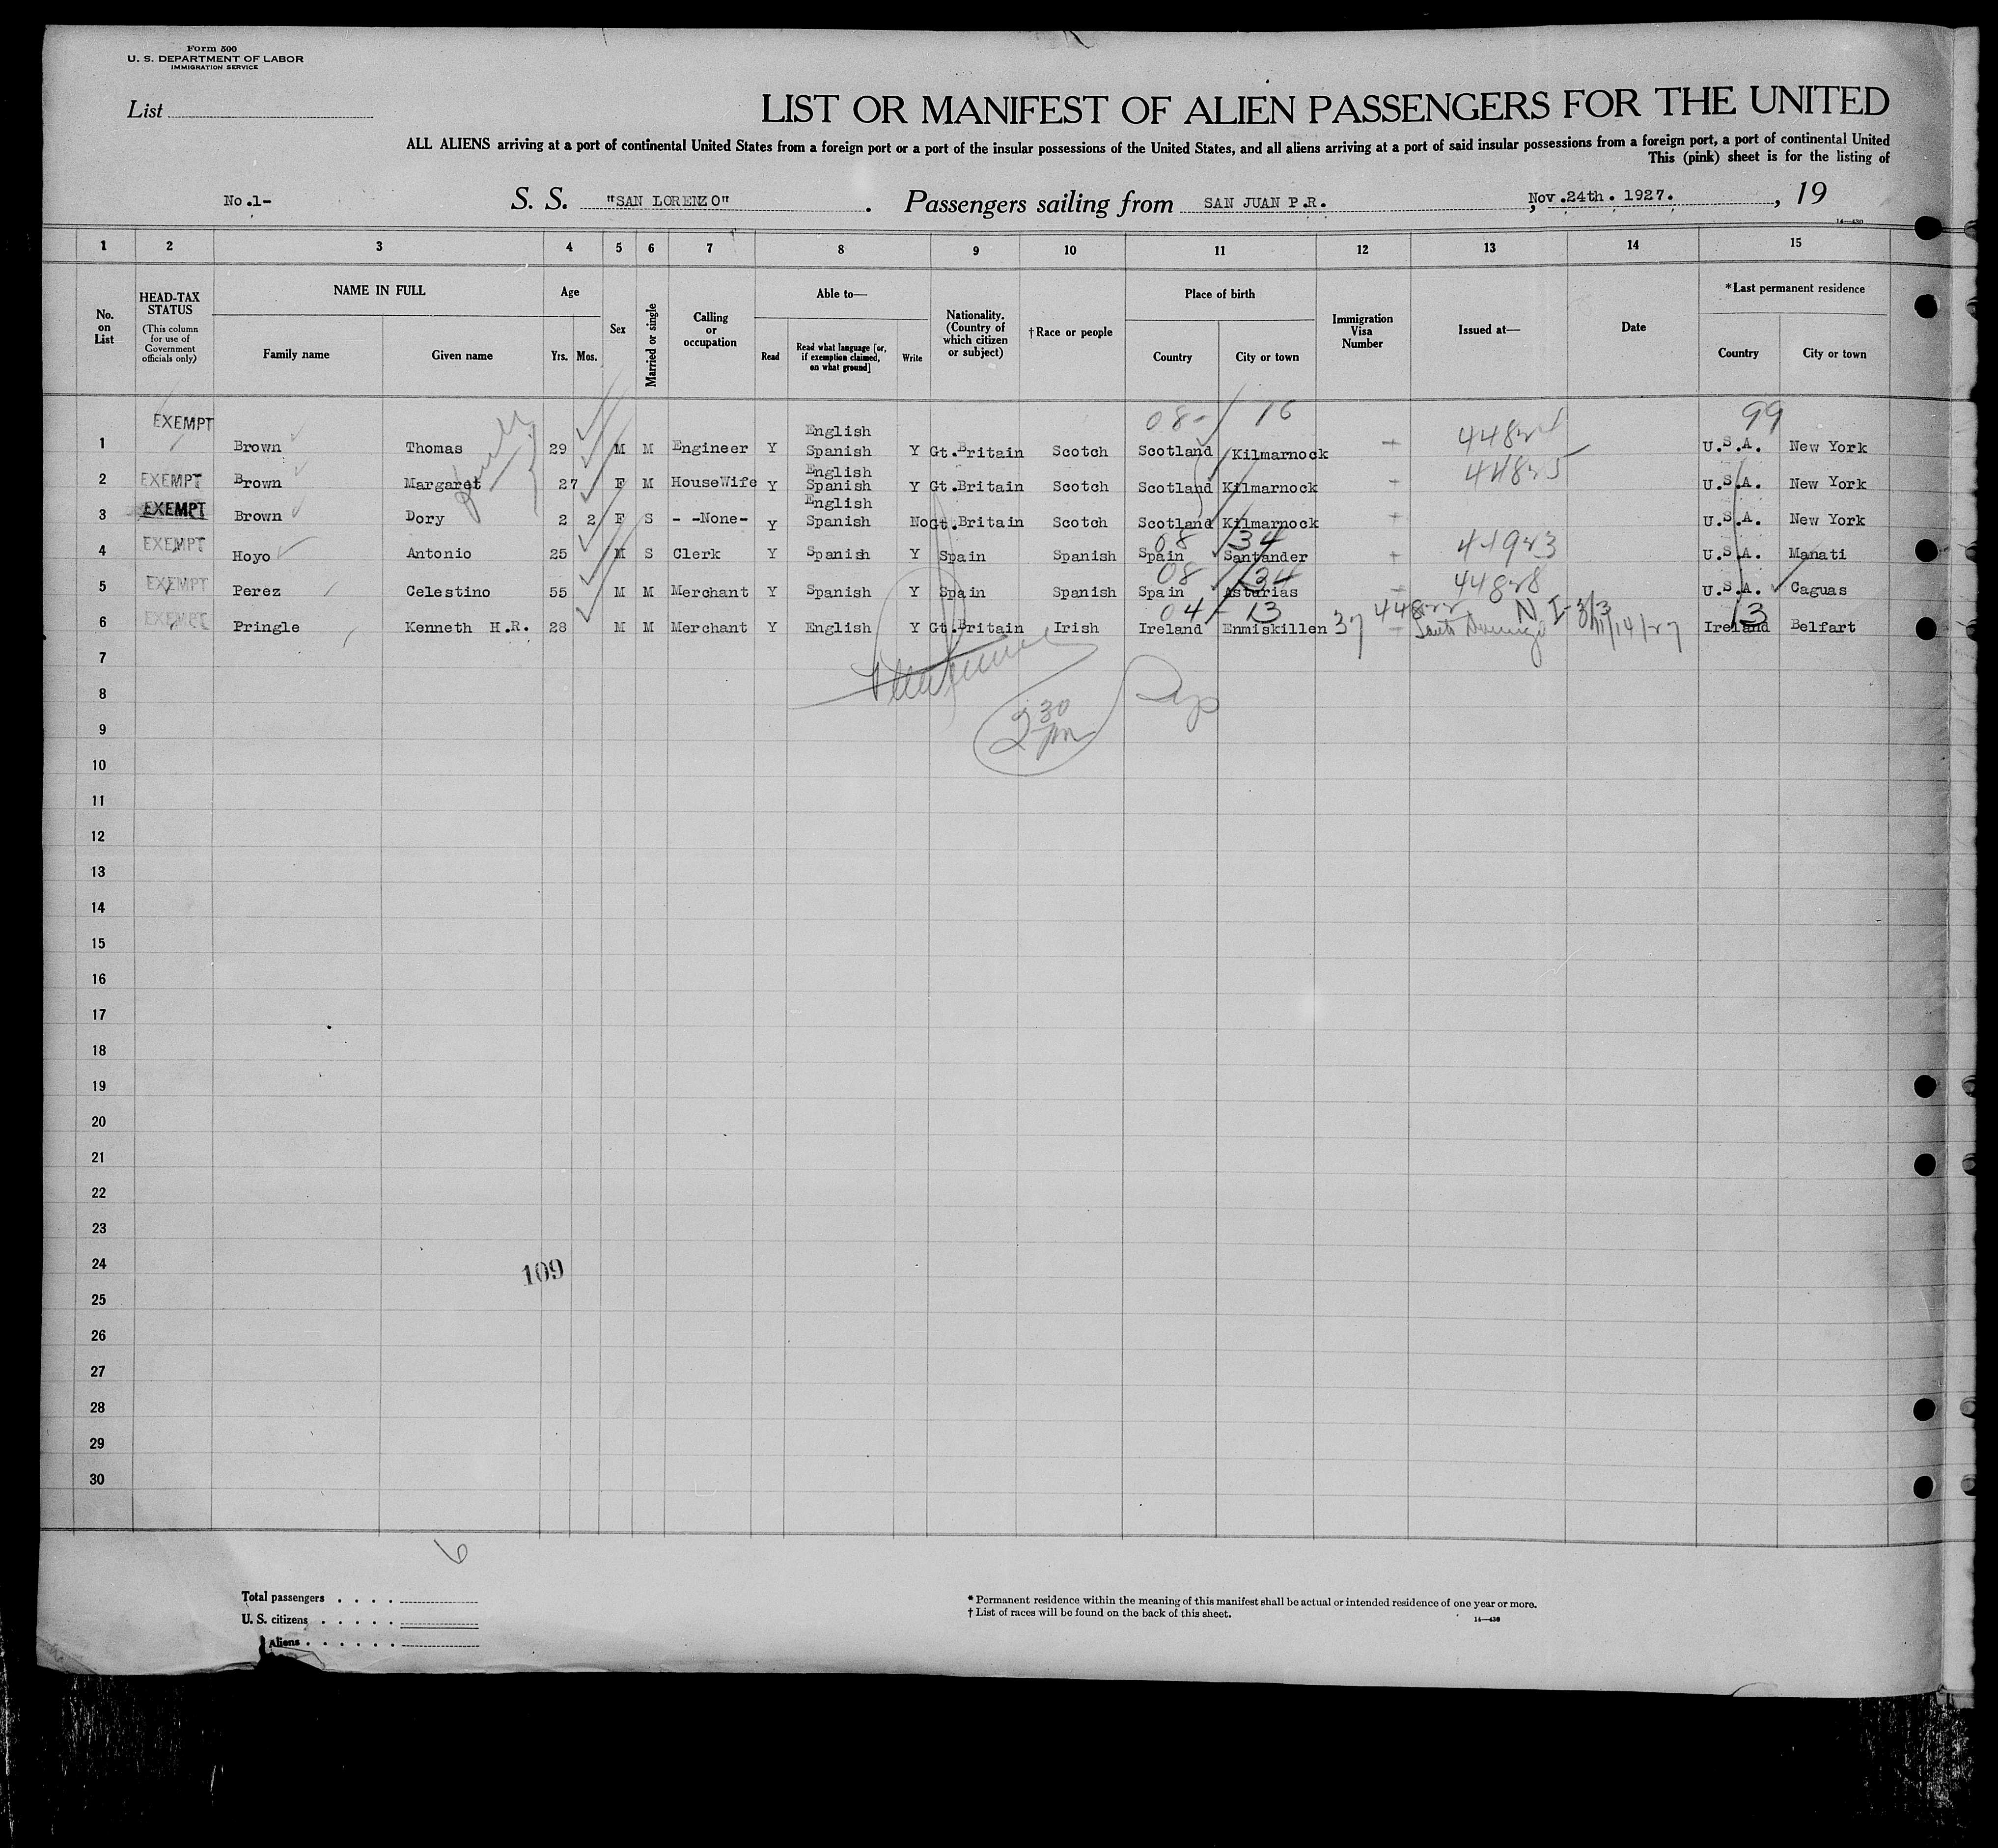 Form 500
U. S. DEPARTMENT OF LABOR
IMMIGRATION SERVICE
List
LIST OR MANIFEST OF ALIEN PASSENGERS FOR THE UNITED
ALL ALIENS arriving at a port of continental United States from a foreign port or a port of the insular possessions of the United States, and all aliens arriving at a port of said insular possessions from a foreign port, a port of continental United
This (pink) sheet is for the listing of
No.1- S. S. "SAN LORENZO" . Passengers sailing from SAN JUAN P.R. , Nov.24th. 1927. , 19
14—430
1 2 3 4 5 6 7 8 9 10 11 12 13 14 15
No. on List
HEAD-TAX STATUS
(This column for use of Government officials only)
NAME IN FULL
Family name Given name
Age
Yrs. Mos.
Sex
Married or single
Calling or occupation
Able to—
Read
Read what language [or, if exemption claimed, on what ground]
Write
Nationality. (Country of which citizen or subject)
†Race or people
Place of birth
Country City or town
Immigration Visa Number
Issued at—
Date
*Last permanent residence
Country City or town
08- 16 99
1 EXEMPT Brown Thomas 29 M M Engineer Y English Spanish Y Gt.Britain Scotch Scotland Kilmarnock U.S.A. New York
2 EXEMPT Brown Margaret 27 F M HouseWife Y English Spanish Y Gt.Britain Scotch Scotland Kilmarnock U.S.A. New York
3 EXEMPT Brown Dory 2 2 F S - -None- Y English Spanish No Gt.Britain Scotch Scotland Kilmarnock U.S.A. New York
08 34
4 EXEMPT Hoyo Antonio 25 M S Clerk Y Spanish Y Spain Spanish Spain Santander U.S.A. Manati
08 34
5 EXEMPT Perez Celestino 55 M M Merchant Y Spanish Y Spain Spanish Spain Asturias U.S.A. Caguas
04 13 13
6 EXEMPT Pringle Kenneth H.R. 28 M M Merchant Y English Y Gt.Britain Irish Ireland Enmiskillen 37 Santo Domingo Ireland Belfart
7
8
2 30 pm
9
10
11
12
13
14
15
16
17
18
19
20
21
22
23
24
109
25
26
27
28
29
30
6
Total passengers . . . .
U. S. citizens . . . . .
Aliens . . . . . .
* Permanent residence within the meaning of this manifest shall be actual or intended residence of one year or more.
† List of races will be found on the back of this sheet.
14—430